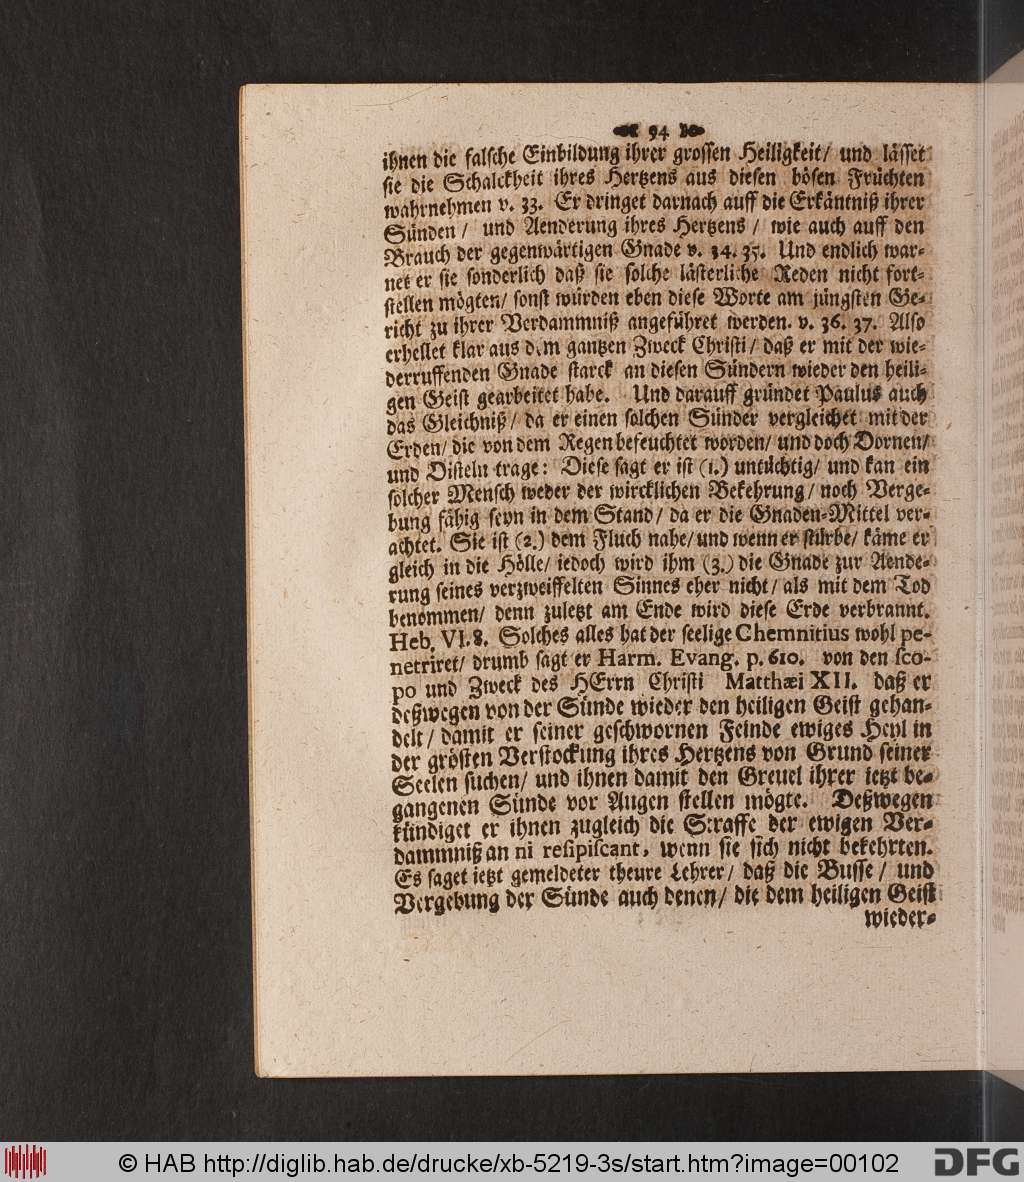 94
ihnen die falsche Einbildung ihrer grossen Heiligkeit/ und lässet
sie die Schalckheit ihres Hertzens aus diesen bösen Früchten
wahrnehmen v. 33. Er dringet darnach auff die Erkäntniß ihrer
Sünden / und Aenderung ihres Hertzens / wie auch auff den
Brauch der gegenwärtigen Gnade v. 34. 35. Und endlich war-
net er sie sonderlich daß sie solche lästerliche Reden nicht fort-
stellen mögten/ sonst würden eben diese Worte am jüngsten Ge-
richt zu ihrer Verdammniß angeführet werden. v. 36. 37. Also
erhellet klar aus dem gantzen Zweck Christi/ daß er mit der wie-
derruffenden Gnade starck an diesen Sündern wieder den heili-
gen Geist gearbeitet habe. Und darauff gründet Paulus auch
das Gleichniß/ da er einen solchen Sünder vergleichet mit der
Erden/ die von dem Regen befeuchtet worden/ und doch Dornen/
und Disteln trage: Diese sagt er ist (1.) untüchtig/ und kan ein
solcher Mensch weder der wircklichen Bekehrung/ noch Verge-
bung fähig seyn in dem Stand/ da er die Gnaden-Mittel ver-
achtet. Sie ist (2.) dem Fluch nahe/ und wenn er stürbe/ käme er
gleich in die Hölle/ iedoch wird ihm (3.) die Gnade zur Aende-
rung seines verzweiffelten Sinnes eher nicht/ als mit dem Tod
benommen/ denn zuletzt am Ende wird diese Erde verbrannt.
Heb. VI. 8. Solches alles hat der seelige Chemnitius wohl pe-
netriret/ drumb sagt er Harm. Evang. p. 610. von den sco-
po und Zweck des HErrn Christi Matthæi XII. daß er
deßwegen von der Sünde wieder den heiligen Geist gehan-
delt/ damit er seiner geschwornen Feinde ewiges Heyl in
der grösten Verstockung ihres Hertzens von Grund seiner
Seelen suchen/ und ihnen damit den Greuel ihrer ietzt be-
gangenen Sünde vor Augen stellen mögte. Deßwegen
kündiget er ihnen zugleich die Straffe der ewigen Ver-
dammniß an ni resipiscant, wenn sie sich nicht bekehrten.
Es saget ietzt gemeldeter theure Lehrer/ daß die Busse/ und
Vergebung der Sünde auch denen/ die dem heiligen Geist
wieder-
© HAB http://diglib.hab.de/drucke/xb-5219-3s/start.htm?image=00102
DFG